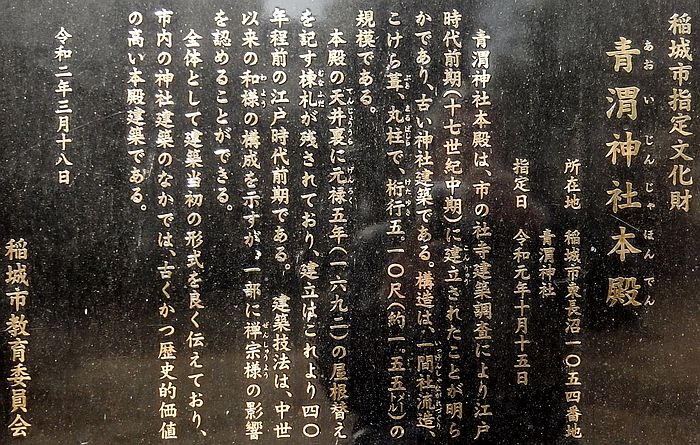 稲城市指定文化財
青渭神社本殿
あおいじんじゃほんでん
所在地　稲城市東長沼一〇五四番地
青渭神社
指定日　令和元年十月十五日
青渭神社本殿は、市の社寺建築調査により江戸
時代前期(十七世紀中期)に建立されたことが明ら
かであり、古い神社建築である。構造は、一間社流造、
こけら葺、丸柱で、桁行五.一〇尺(約一.五五メートル)の
規模である。
本殿の天井裏に元禄五年(一六九二)の屋根替え
を記す棟札が残されており、建立はこれより四〇
年程前の江戸時代前期である。　建築技法は、中世
以来の和様の構成を示すが、一部に禅宗様の影響
を認めることができる。
全体として建築当初の形式を良く伝えており、
市内の神社建築のなかでは、古くかつ歴史的価値
の高い本殿建築である。
令和二年三月十八日
稲城市教育委員会